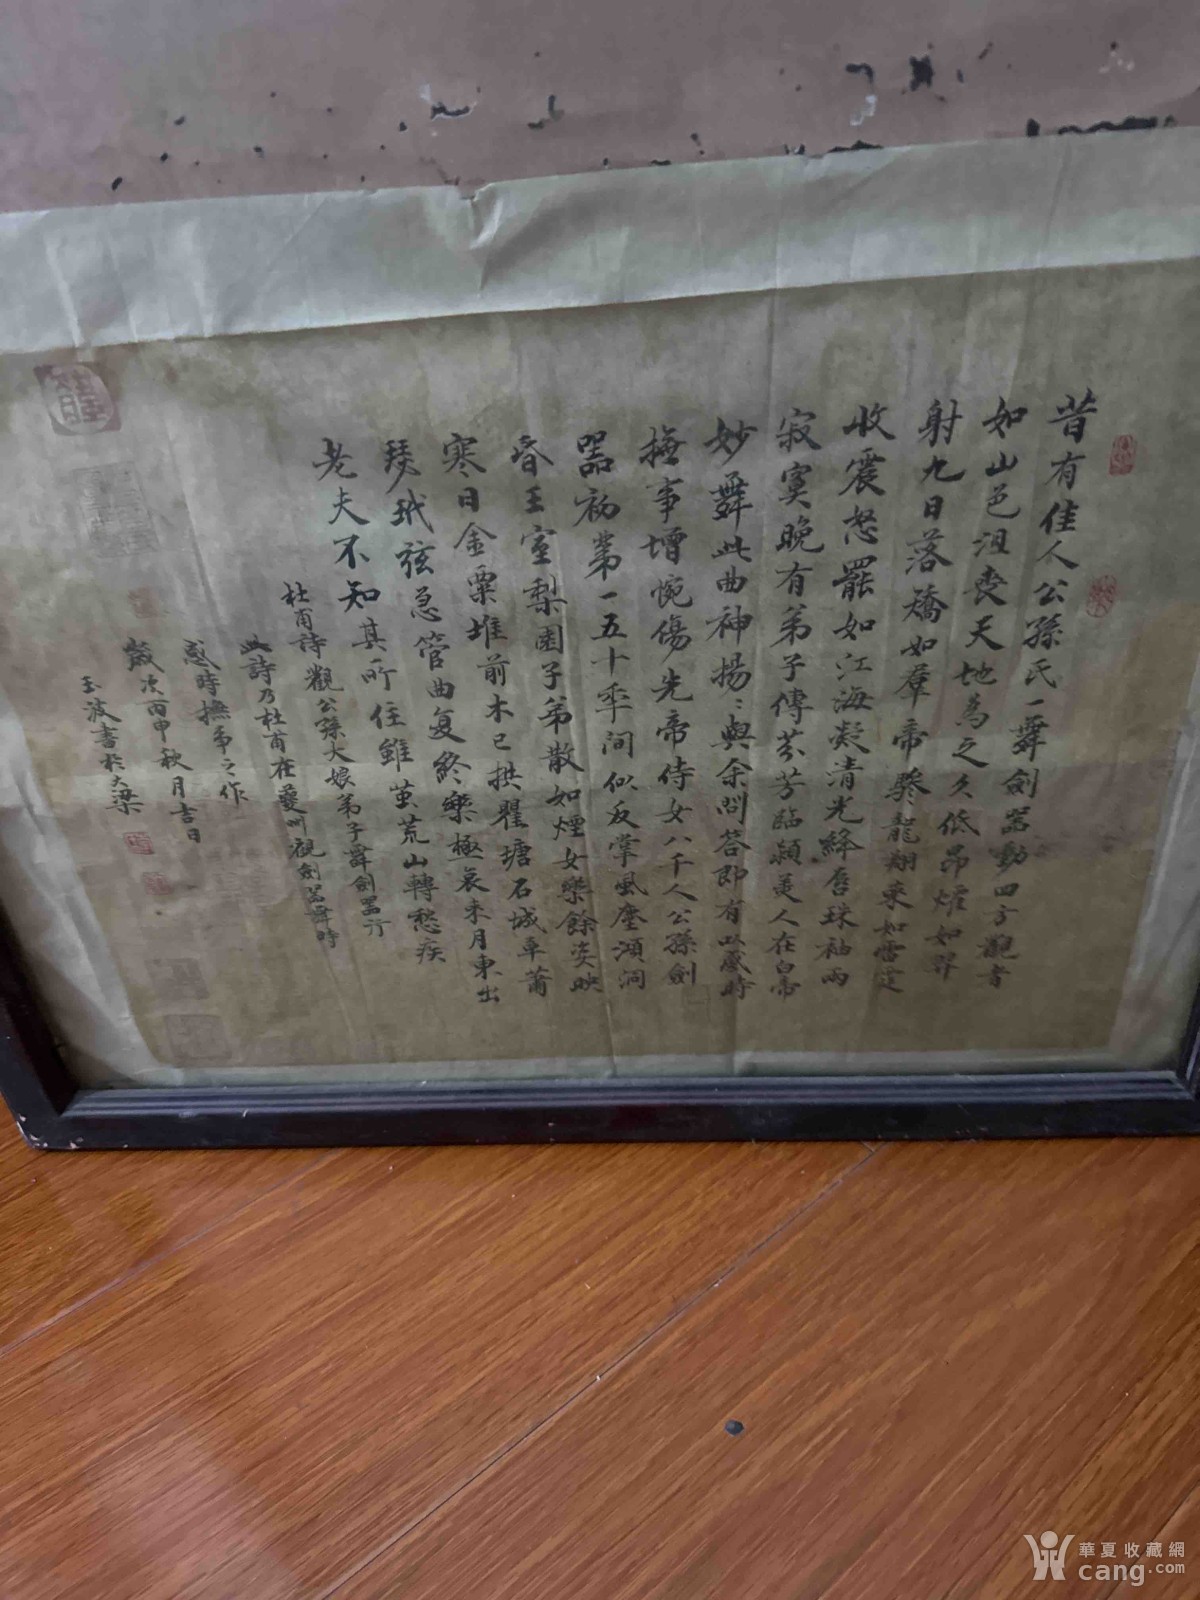 昔有佳人公孫氏一舞劍器動四方觀者
如山色沮喪天地為之久低昂㸌如羿
射九日落矯如羣帝驂龍翔來如雷霆
收震怒罷如江海凝清光絳唇珠袖兩
寂寞晚有弟子傳芬芳臨潁美人在白帝
妙舞此曲神揚〻與余問答即有以感時
撫事增惋傷先帝侍女八千人公孫劍
器初第一五十年間似反掌風塵澒洞
昏王室梨園子弟散如煙女樂餘姿映
寒日金粟堆前木已拱瞿塘石城草蕭
瑟玳弦急管曲复終樂極哀來月東出
老夫不知其所住雖茧荒山轉愁疾
杜甫詩觀公孫大娘弟子舞劍器行
此詩乃杜甫在夔州觀劍器舞時
感時撫事之作
歲次丙申秋月吉日
玉波書於大梁
華夏收藏網
cang.com